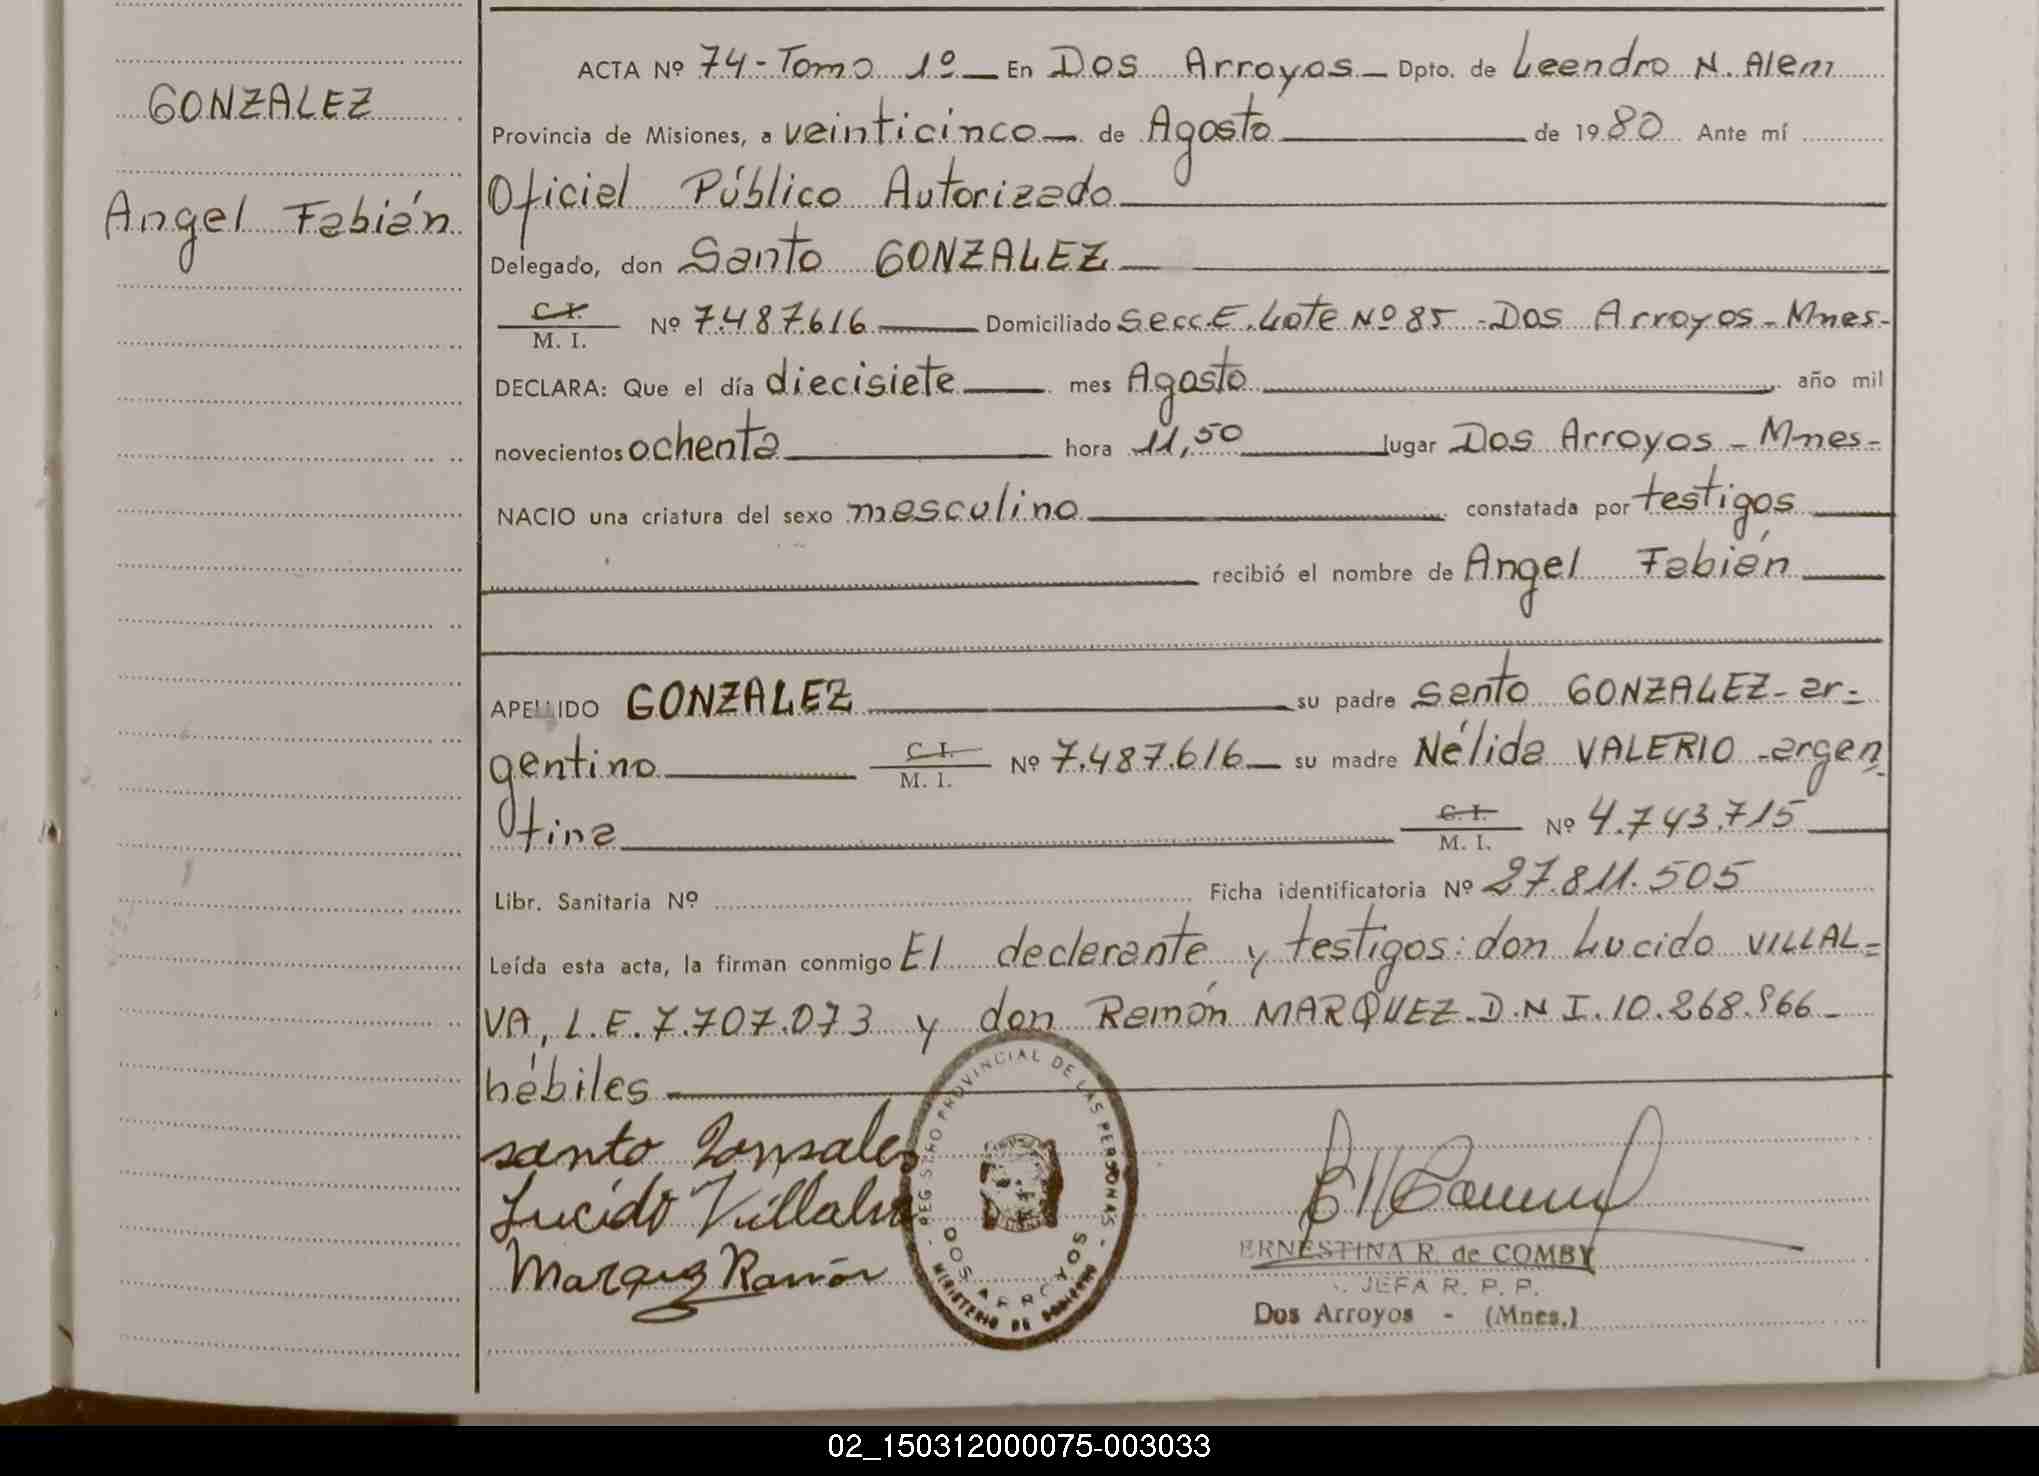 GONZALEZ
Angel Fabián
ACTA Nº 74 - Tomo 1º En Dos Arroyos Dpto. de Leandro N. Alem
Provincia de Misiones, a veinticinco de Agosto de 1980 Ante mí
Oficial Público Autorizado
Delegado, don Santo GONZALEZ
C. I.
M. I. Nº 7.487.616 Domiciliado Secc. E. Lote Nº 85 - Dos Arroyos - Mnes-
DECLARA: Que el día diecisiete mes Agosto año mil
novecientos ochenta hora 11,50 lugar Dos Arroyos - Mnes-
NACIO una criatura del sexo masculino constatada por testigos
recibió el nombre de Angel Fabián
APELLIDO GONZALEZ su padre Santo GONZALEZ - ar=
gentino C. I. M. I. Nº 7.487.616 su madre Nélida VALERIO - argen
tina C. I. M. I. Nº 4.743.715
Libr. Sanitaria Nº Ficha identificatoria Nº 27.811.505
Leída esta acta, la firman conmigo El declarante y testigos: don Lucido VILLAL=
VA, L.E. 7.707.073 y don Ramón MARQUEZ - D.N.I. 10.868.966 -
hábiles
santo Gonsales
Lucido Villalva
Marquez Ramón
REGISTRO PROVINCIAL DE LAS PERSONAS
DOS ARROYOS
MINISTERIO DE GOBIERNO
ERNESTINA R. de COMBY
JEFA R. P. P.
Dos Arroyos - (Mnes.)
02_150312000075-003033